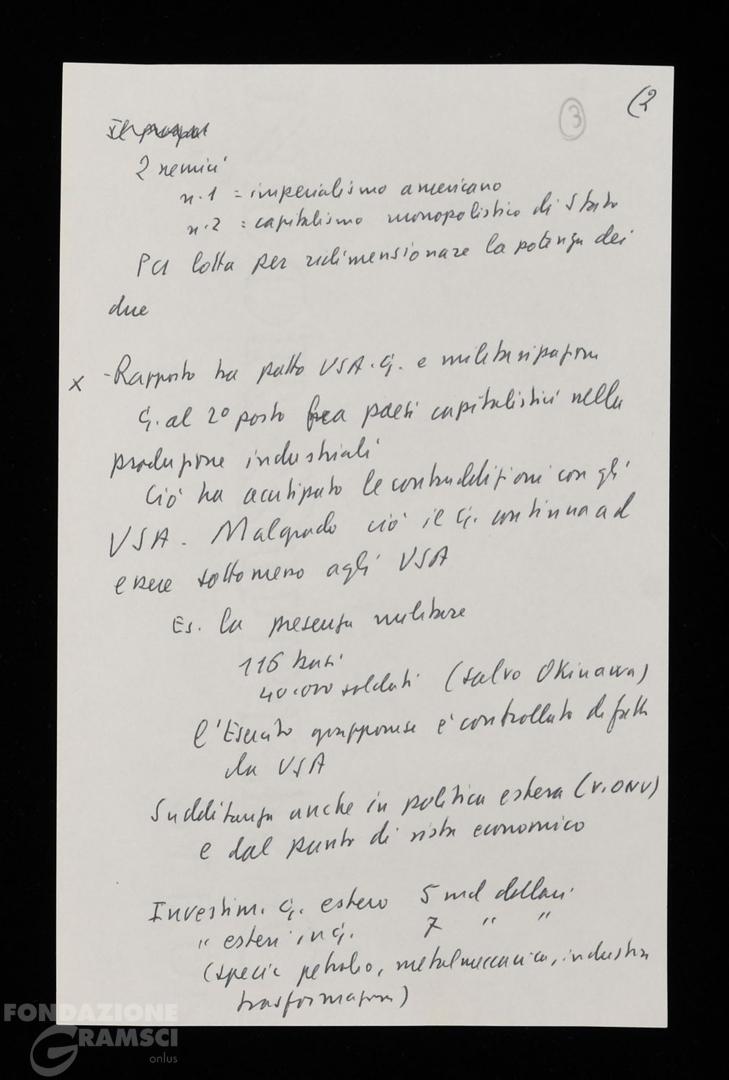 (2
3
2 nemici
n. 1 = imperialismo americano
n. 2 = capitalismo monopolistico di Stato
PCI lotta per ridimensionare la potenza dei
due
x - Rapporto tra patto USA. G. e militarizzazione
G. al 2º posto fra paesi capitalistici nella
produzione industriali
Ciò ha acutizzato le contraddizioni con gli
USA. Malgrado ciò il G. continua ad
essere sottomesso agli USA
Es. la presenza militare
116 basi
40.000 soldati (salvo Okinawa)
l'Esercito giapponese è controllato di fatto
da USA
Sudditanza anche in politica estera (v. ONU)
e dal punto di vista economico
Investim. G. estero 5 md dollari
" esteri in G. 7 " "
(specie petrolio, metalmeccanica, industria
trasformazione)
FONDAZIONE
GRAMSCI
onlus